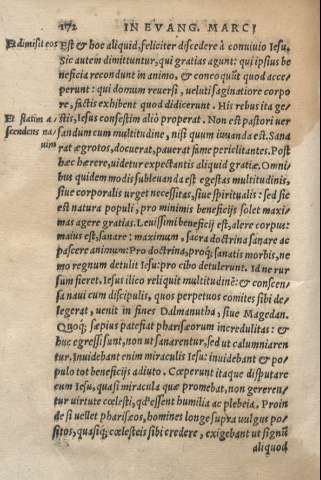 172 IN EVANG. MARCI
Et dimisit eos
Est & hoc aliquid, feliciter discedere à conuiuio Iesu.
Sic autem dimittuntur, qui gratias agunt: qui ipsius be
neficia recondunt in animo, & concoquũt quod acce
perunt: qui domum reuersi, uelut i saginatiore corpo
re, factis exhibent quod didicerunt. His rebus ita ge
Et statim a
stis, Iesus confestim aliò properat. Non est pastori uer
scendens na
sandum cum multitudine, nisi quum iuuanda est. Sana
uim
rat ægrotos, docuerat, pauerat fame periclitantes. Post
hæc hærere, uidetur expectantis aliquid gratiæ. Omni
bus quidem modis subleuanda est egestas multitudinis,
siue corporalis urget necessitas, siue spiritualis: sed sic
est natura populi, pro minimis beneficijs solet maxi
mas agere gratias. Leuissimi beneficij est, alere corpus:
maius est, sanare: maximum, sacra doctrina sanare ac
pascere animum: Pro doctrina, proq́; sanatis morbis, ne
mo regnum detulit Iesu: pro cibo detulerunt. Id ne rur
sum fieret, Iesus ilico reliquit multitudinẽ: & conscen
sa naui cum discipulis, quos perpetuos comites sibi de
legerat, uenit in fines Dalmanutha, siue Magedan.
Quoq́; sæpius patefiat pharisæorum incredulitas: &
huc egressi sunt, non ut sanarentur, sed ut calumniaren
tur. Inuidebant enim miraculis Iesu: inuidebant & po
pulo tot beneficijs adiuto. Cœperunt itaque disputare
cum Iesu, quasi miracula quæ promebat, non gereren
tur uirtute cœlesti, qd' essent humilia ac plebeia. Proin
de si uellet pharisæos, homines longe supra uulgus po
sitos, quasiq́; cœlesteis sibi credere, exigebant ut signũ
aliquod